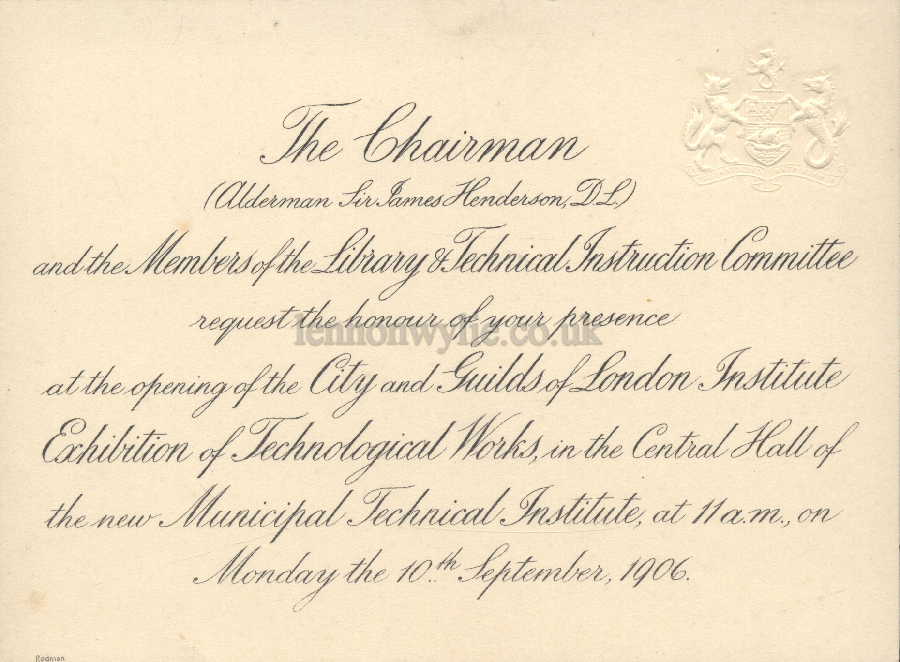 The Chairman
(Alderman Sir James Henderson, D.L.)
and the Members of the Library & Technical Instruction Committee
request the honour of your presence
lennonwylie.co.uk
at the opening of the City and Guilds of London Institute
Exhibition of Technological Works, in the Central Hall of
the new Municipal Technical Institute, at 11 a.m., on
Monday the 10th September, 1906.
Rodman